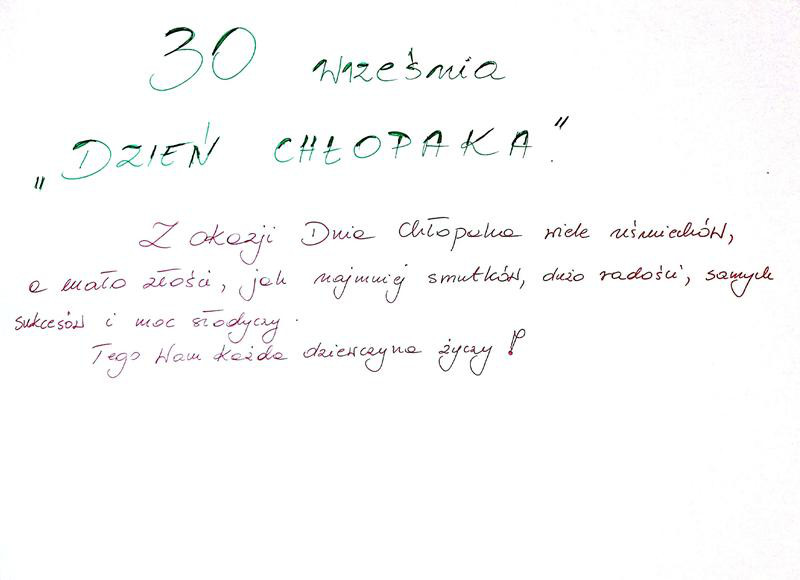 30 września
„DZIEŃ CHŁOPAKA."
Z okazji Dnia Chłopaka wiele uśmiechów,
a mało złości, jak najmniej smutków, dużo radości, samych
sukcesów i moc słodyczy.
Tego Wam każda dziewczyna życzy!